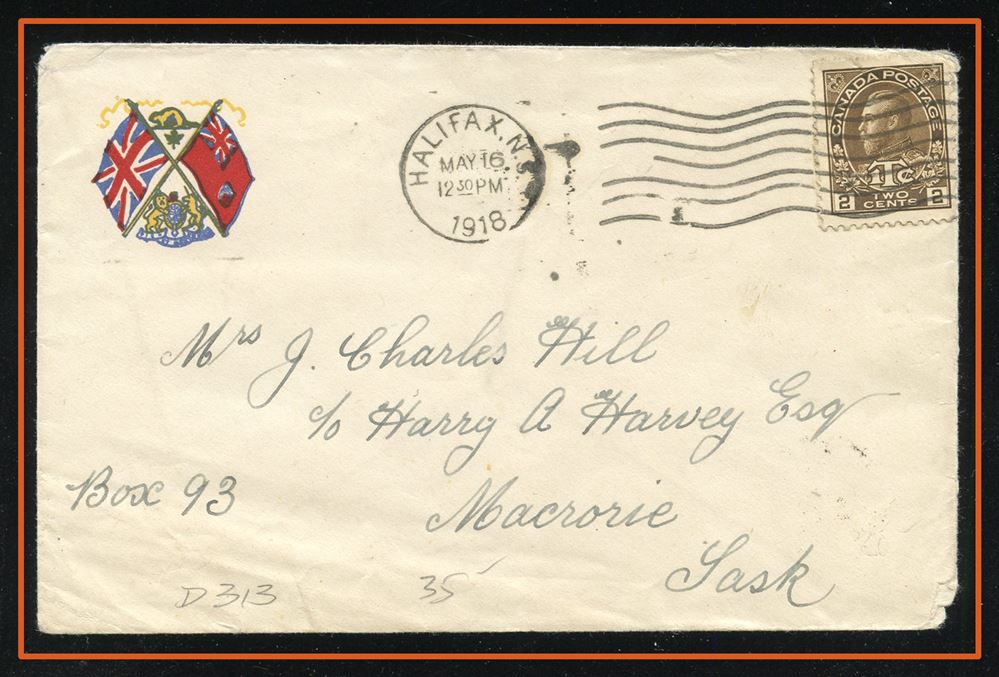 HALIFAX, N.S.
MAY 16
12 30 PM
1918
CANADA POSTAGE
1Tc
2 TWO CENTS 2
Mrs J. Charles Hill
c/o Harry A Harvey Esq
Box 93
Macrorie
Sask
D313
35